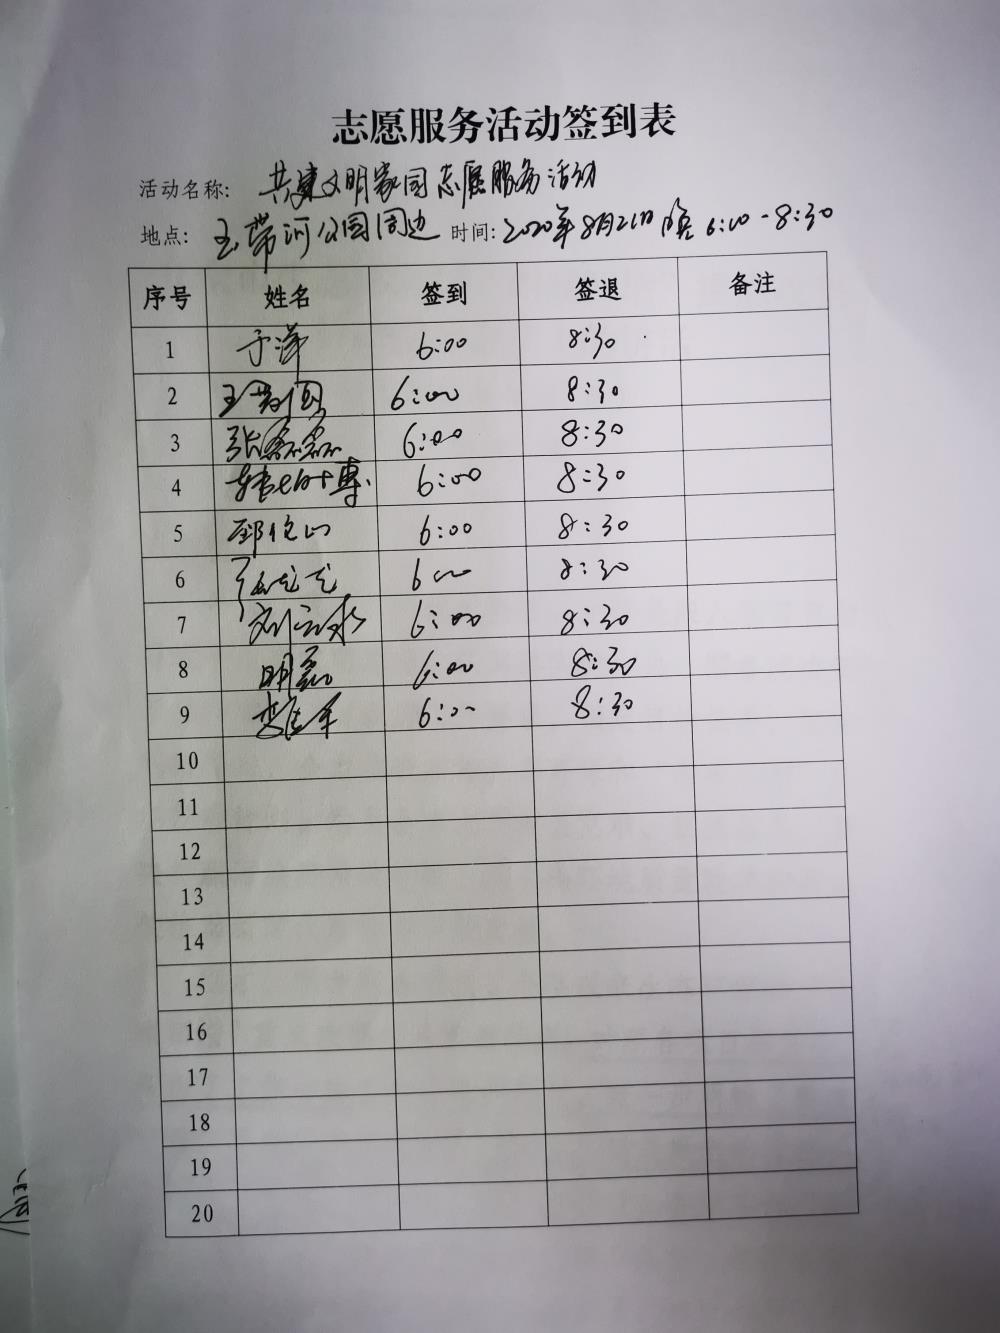 志愿服务活动签到表
活动名称: 共建文明家园志愿服务活动
地点: 玉带河公园周边 时间: 2020年8月21日 晚 6:00-8:30
序号 姓名 签到 签退 备注
1 于洋 6:00 8:30
2 王 国 6:00 8:30
3 张磊磊 6:00 8:30
4 韩 博 6:00 8:30
5 6:00 8:30
6 6:00 8:30
7 刘 6:00 8:30
8 明磊 6:00 8:30
9 军 6:00 8:30
10
11
12
13
14
15
16
17
18
19
20